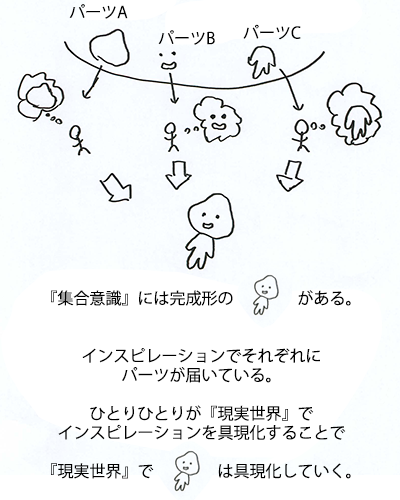 パーツA
パーツB
パーツC
『集合意識』には完成形の がある。
インスピレーションでそれぞれに
パーツが届いている。
ひとりひとりが『現実世界』で
インスピレーションを具現化することで
『現実世界』で は具現化していく。